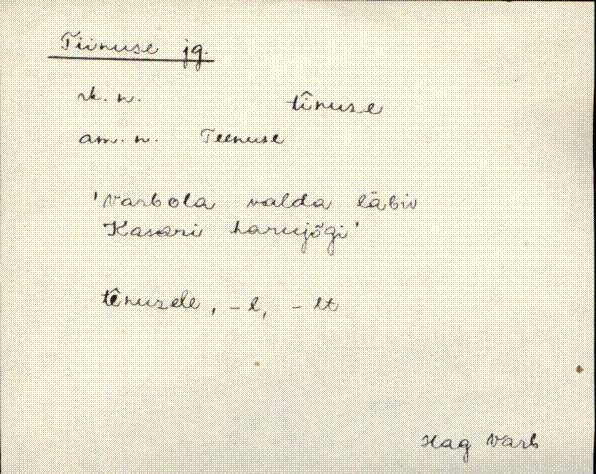 Tiinuse jg.
rk. n. tînuse
am. n. Teenuse
'Varbola valda läbiv
Kasari harujõgi'
tînusele, -l, -lt
Hag Varb